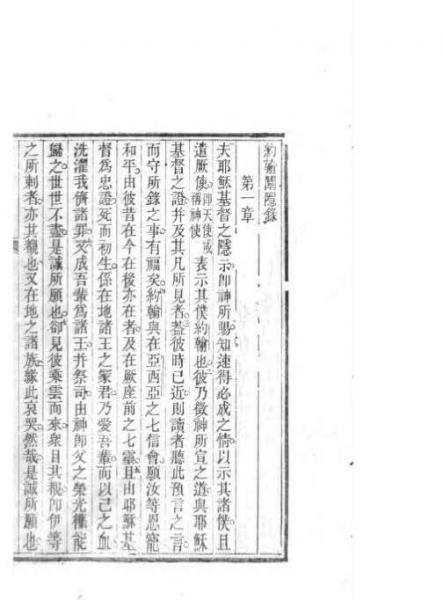 約翰開隱錄
第一章
夫耶穌基督之隱示卽神所賜知速得必成之情以示其諸僕且
遣厥使卽天使或稱神使表示其僕約翰也彼乃徵神所宣之道與耶穌
基督之證幷及其凡所見者蓋彼時已近則讀者聽此預言之言
而守所錄之事有福矣約翰與在亞西亞之七信會願汝等恩寵
和平由彼昔在今在後亦在者及在厥座前之七靈且由耶穌基
督爲忠證死而初生係在地諸王之君乃愛吾輩而以己之血
洗濯我儕諸罪又成吾輩爲諸王幷祭司由神卽父之榮光權能
歸之世世不盡是誠所願也卻見彼乘雲而來衆目其覩卽伊等
之所刺者亦其覩也又在地之諸族緣此哀哭然哉是誠所願也